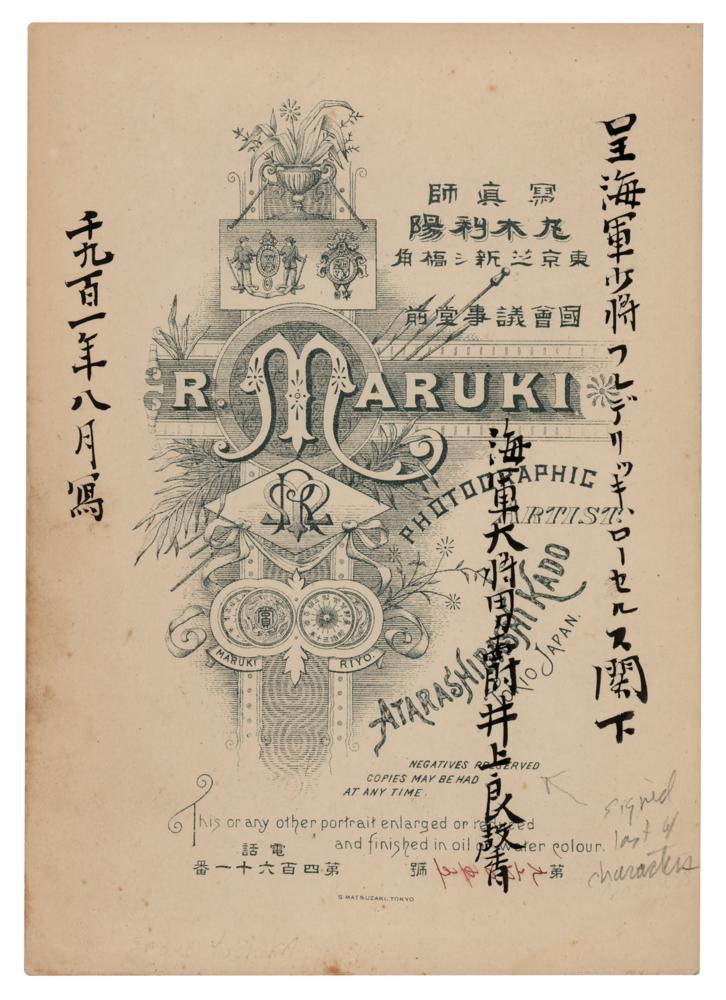 呈海軍少将フレデリッキ、ローセルス閣下
海軍大将男爵井上良馨
千九百一年八月寫
寫真師
丸木利陽
東京芝新シ橋角
國會議事堂前
R. MARUKI
PHOTOGRAPHIC
ARTIST.
ATARASHIBASHI KADO
TOKIO JAPAN.
MARUKI RIYO.
NEGATIVES PRESERVED
COPIES MAY BE HAD
AT ANY TIME.
This or any other portrait enlarged or reduced
and finished in oil or water colour.
電話
第四百六十一番
第 號
S. MATSUZAKI, TOKYO
signed
last 6
characters